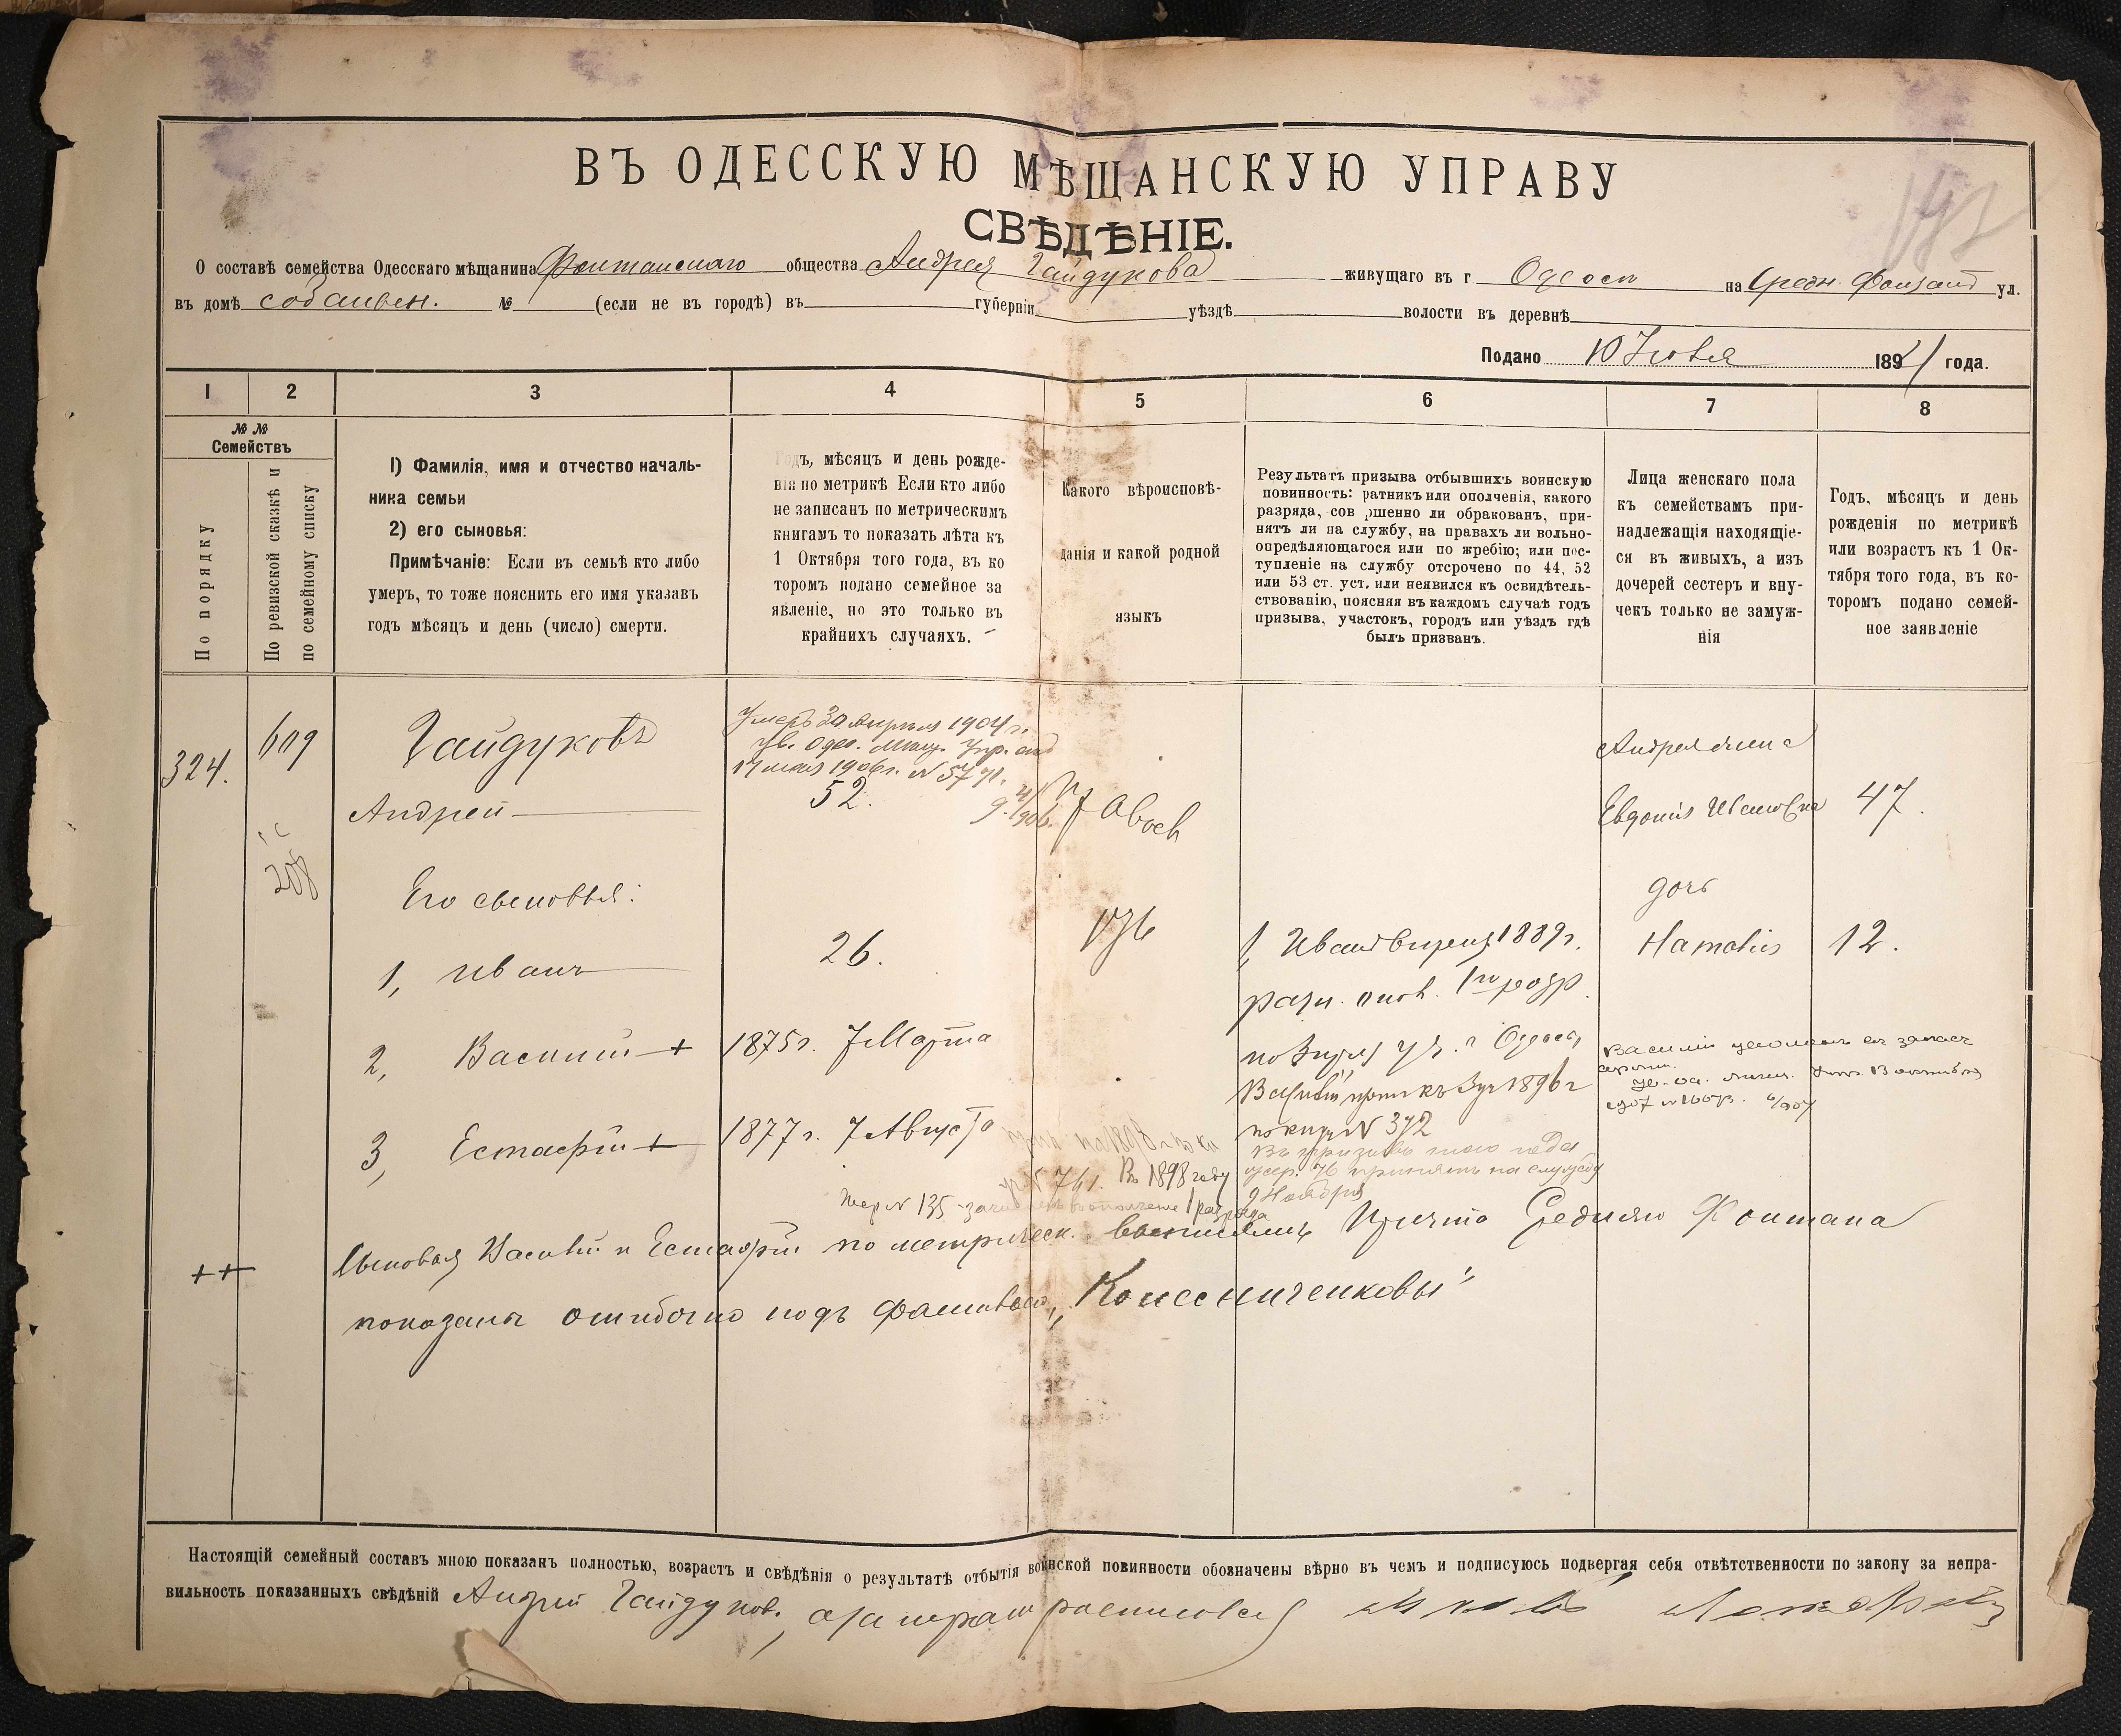 ВЪ ОДЕССКУЮ МѢЩАНСКУЮ УПРАВУ
СВѢДѢНІЕ.
О составѣ семейства Одесскаго мѣщанина Фонтанскаго общества Андрея Гайдукова живущаго въ г. Одессѣ на Средн. Фонтанѣ ул.
въ домѣ собствен. № (если не въ городѣ) въ губерніи уѣздѣ волости въ деревнѣ
Подано 10 Іюля 1891 года.
1 2 3 4 5 6 7 8
№ №
Семействъ
По порядку
По ревизской сказкѣ и
по семейному списку
1) Фамилія, имя и отчество началь-
ника семьи
2) его сыновья:
Примѣчаніе: Если въ семьѣ кто либо
умеръ, то тоже пояснить его имя указавъ
годъ мѣсяцъ и день (число) смерти.
Годъ, мѣсяцъ и день рожде-
нія по метрикѣ Если кто либо
не записанъ по метрическимъ
книгамъ то показать лѣта къ
1 Октября того года, въ ко
торомъ подано семейное за
явленіе, но это только въ
крайнихъ случаяхъ.
Какого вѣроисповѣ-
данія и какой родной
языкъ
Результатъ призыва отбывшихъ воинскую
повинность: ратникъ или ополченія, какого
разряда, сов ршенно ли обракованъ, при-
нятъ ли на службу, на правахъ ли вольно-
опредѣляющагося или по жребію; или пос-
тупленіе на службу отсрочено по 44, 52
или 53 ст. уст. или неявился къ освидѣтель-
ствованію, поясняя въ каждомъ случаѣ годъ
призыва, участокъ, городъ или уѣздъ гдѣ
былъ призванъ.
Лица женскаго пола
къ семействамъ при-
надлежащія находящіе-
ся въ живыхъ, а изъ
дочерей сестеръ и вну-
чекъ только не замуж-
нія
Годъ, мѣсяцъ и день
рожденія по метрикѣ
или возрастъ къ 1 Ок-
тября того года, въ ко-
торомъ подано семей-
ное заявленіе
324. 609 Гайдуковъ
Умеръ 30 Апрѣля 1904 г.
Ув. Одес. Мѣщ. Упр. отъ
17 мая 1906 г. N 5771.
Андрей 52.
Андрея жена
Евдокія Ивановна 47.
208
Его сыновья:
дочь
Наталія 12.
1, Иванъ 26.
1, Иванъ 1889 г.
рат. опол. 1го разр.
2, Василий + 1875 г. 7 Марта
по уч. г. Одессы
Василій къ 1896 г
N 372
Василій уволенъ въ запасъ
арміи.
3, Естафій + 1877 г. 7 Августа
въ призывъ того года
жер. 76 принятъ на службу
9 Ноября
N 761. Въ 1898 году
жер N 135 - зачисленъ въ ополченіе 1 разряда
++ Сыновья Василій и Естафій по метрическ. Причта Средняго Фонтана
показаны ошибочно подъ фамиліею „Колесниченковы“
Настоящій семейный составъ мною показанъ полностью, возрастъ и свѣдѣнія о результатѣ отбытія воинской повинности обозначены вѣрно въ чемъ и подписуюсь подвергая себя отвѣтственности по закону за непра-
вильность показанныхъ свѣдѣній Андрей Гайдуков,